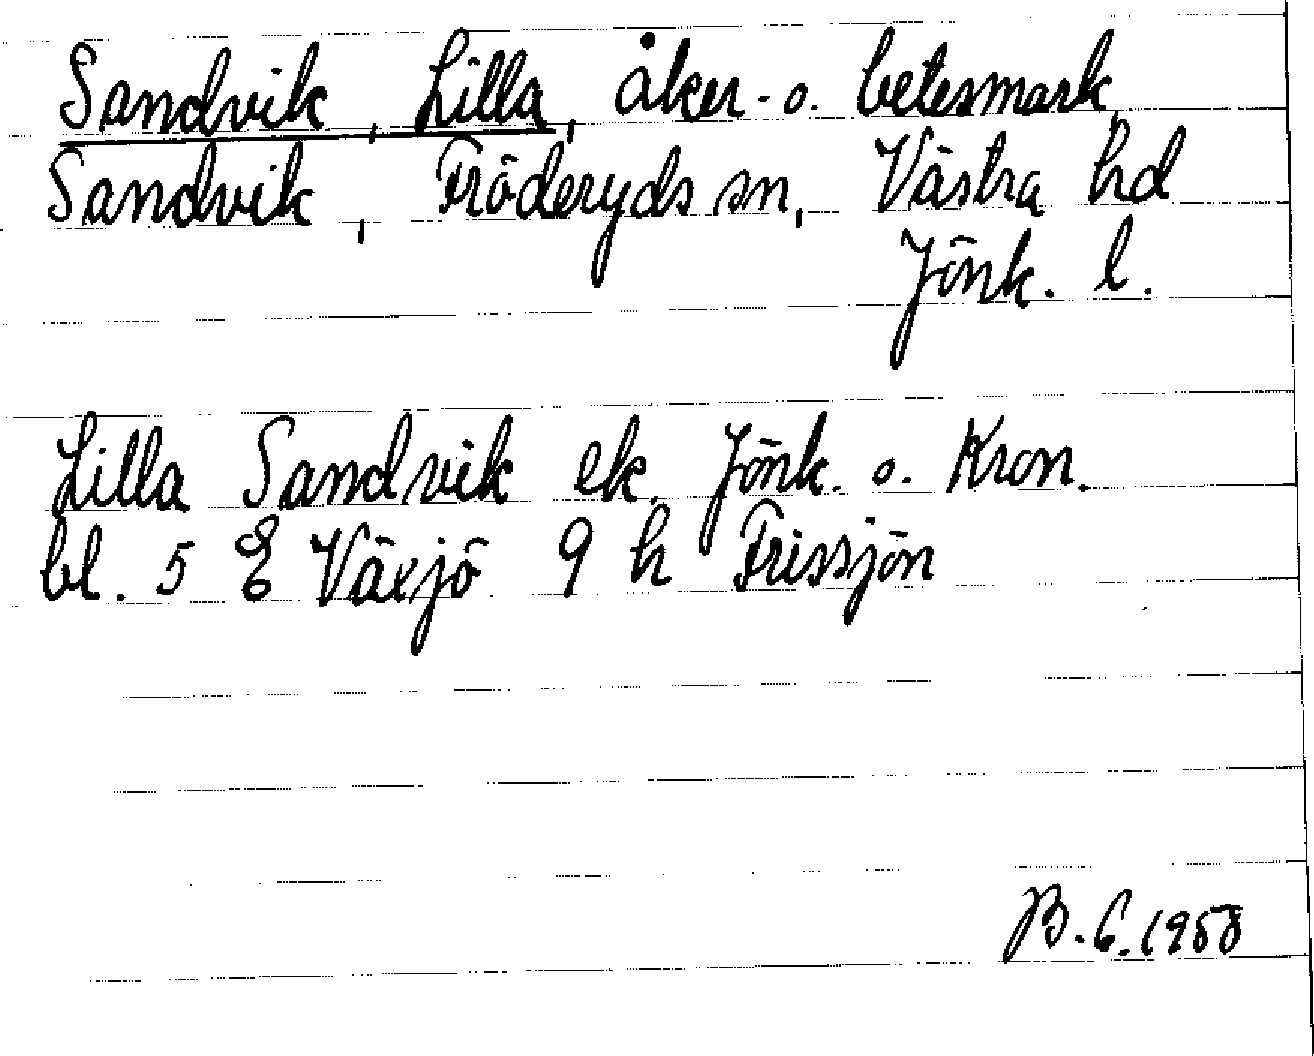 Sandvik, Lilla, åker- o. betesmark,
Sandvik, Fröderyds sn, Västra hd
Jönk. l.
Lilla Sandvik ek. Jönk. o. Kron.
bl. 5 E Växjö 9 h Frissjön
B. C. 1958